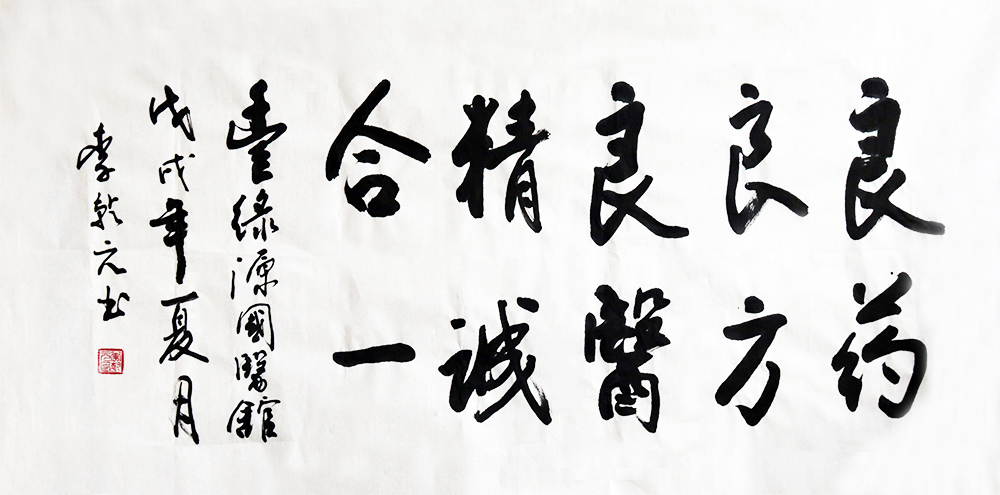 良药
良方
良醫
精诚
合一
豐绿源國醫館
戊戌年夏月
李乾元书